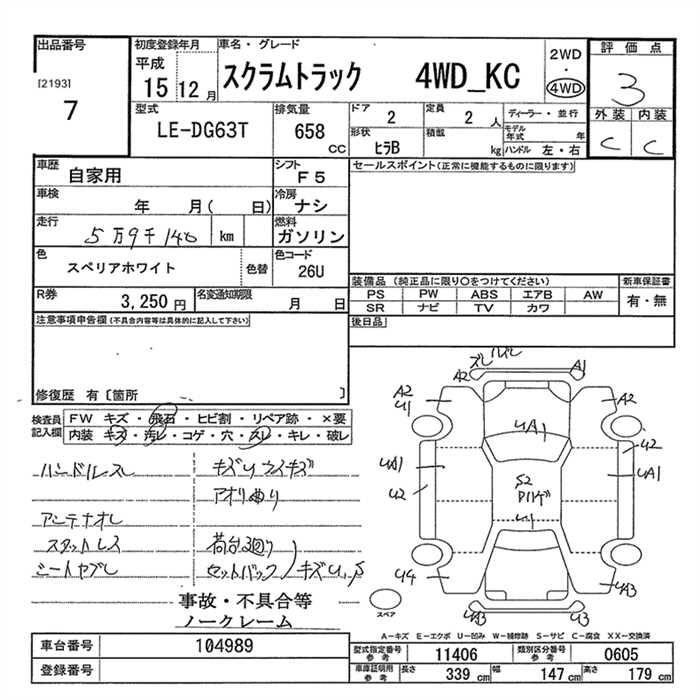 出品番号
[2193]
7
初度登録年月
平成
15 12月
車名・グレード
スクラムトラック 4WD_KC
2WD
・
4WD
評価点
3
外装 内装
C C
型式
LE-DG63T
排気量
658
CC
ドア
2
定員
2 人
ディーラー・並行
形状
ヒラB
積載
kg
モデル年式 年
ハンドル 左・右
車歴
自家用
シフト
F5
セールスポイント(正常に機能するものに限ります)
車検
年 月( 日)
冷房
ナシ
走行
5万9千140 km
燃料
ガソリン
色
スペリアホワイト
色替
色コード
26U
R券
3,250円
名変通知期限
月 日
装備品 (純正品に限り○をつけてください)
PS PW ABS エアB AW
SR ナビ TV カワ
新車保証書
有・無
後日品
注意事項申告欄(不具合内容等は具体的に記入して下さい)
修復歴 有〔箇所 〕
検査員記入欄
FW キズ・飛石・ヒビ割・リペア跡・×要
内装 キズ・汚レ・コゲ・穴・スレ・キレ・破レ
ハンドルスレ
キズU ウスキズ
アオリ曲り
アンテナオレ
スタットレス
荷台廻り
シートヤブレ
セットバック キズU,S
事故・不具合等
ノークレーム
A2
A1
A2
U1
A2
UA1
U2
UA1
UA1
U2
S2
U4
UA3
UA3
U3
スペア
A－キズ E－エクボ U－凹み W－補修跡 S－サビ C－腐食 XX－交換済
車台番号
104989
登録番号
型式指定番号
参考
11406
類別区分番号
参考
0605
車庫証明用
参考
長さ
339 cm
幅
147 cm
高さ
179 cm